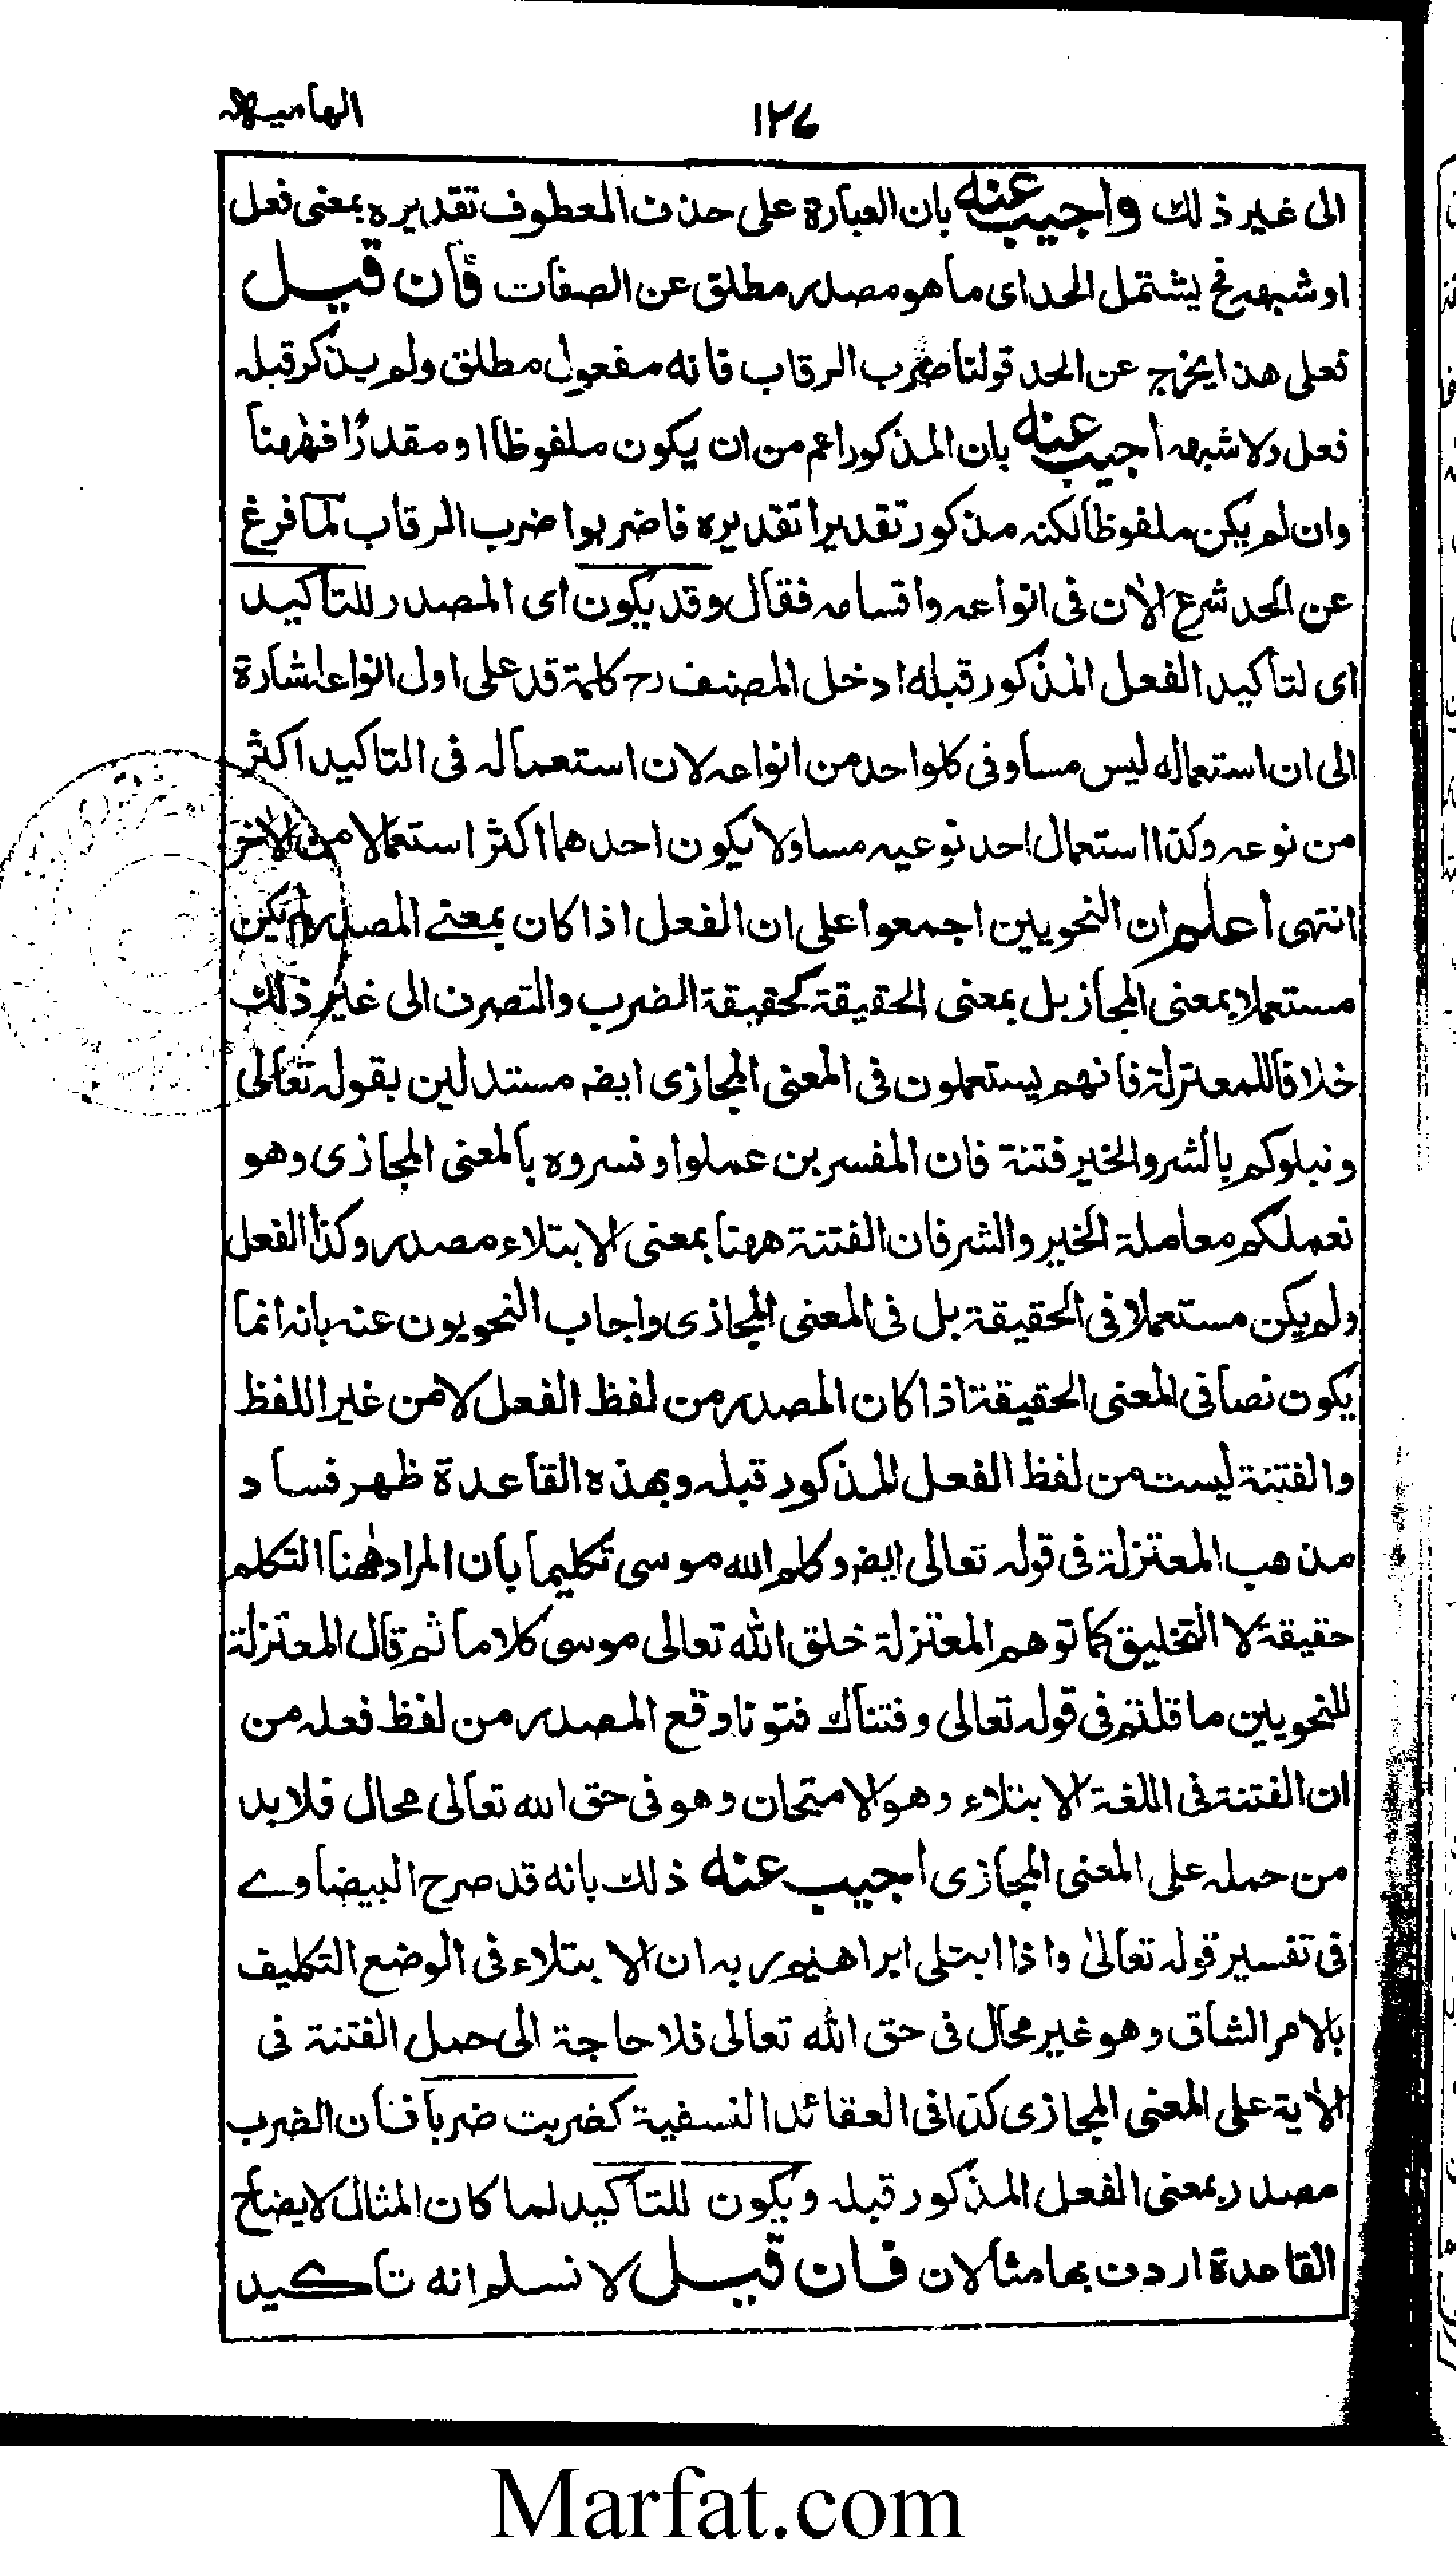 الهاميه
١٢٧
الى غير ذلك واجيب عنه بان العبارة على حذف المعطوف تقديره بمعنى فعل
او شبهه فح يشتمل الحد اى ما هو مصدر مطلق عن الصفات فان قيل
فعلى هذا يخرج عن الحد قولنا ضرب الرقاب فانه مفعول مطلق ولم يذكر قبله
فعل ولا شبهه اجيب عنه بان المذكور اعم من ان يكون ملفوظا او مقدرًا فههنا
وان لم يكن ملفوظا لكنه مذكور تقديرا تقديره فاضربوا ضرب الرقاب لما فرغ
عن الحد شرع الأن فى انواعه واقسامه فقال وقد يكون اى المصدر للتاكيد
اى لتأكيد الفعل المذكور قبله ادخل المصنف رح كلمة قد على اول انواعه اشارة
الى ان استعماله ليس مساو فى كلواحد من انواعه لان استعماله فى التاكيد اكثر
من نوعه وكذا استعمال احد نوعيه مساو لا يكون احدهما اكثر استعمالا من الأخر
انتهى أعلم ان النحويين اجمعوا على ان الفعل اذا كان بمعنے المصدر لم يكن
مستعملا بمعنى المجاز بل بمعنى الحقيقة كحقيقة الضرب والتصرف الى غير ذلك
خلافا للمعتزلة فانهم يستعملون فى المعنى المجازى ايضه مستدلين بقوله تعالى
ونبلوكم بالشر والخير فتنة فان المفسرين عملوا وفسروه بالمعنى المجازى وهو
نعملكم معاملة الخير والشر فان الفتنة ههنا بمعنى الابتلاء مصدر وكذا الفعل
ولم يكن مستعملا فى الحقيقة بل فى المعنى المجازى واجاب النحويون عنه بانه انما
يكون نصا فى المعنى الحقيقة اذا كان المصدر من لفظ الفعل لا من غير اللفظ
والفتنة ليست من لفظ الفعل المذكور قبله وبهذه القاعدة ظهر فساد
مذهب المعتزلة فى قوله تعالى ايضه وكلم الله موسى تكليما بان المراد ههنا التكلم
حقيقة لا التخليق كما توهم المعتزلة خلق الله تعالى موسى كلاما ثم قال المعتزلة
للنحويين ما قلتم فى قوله تعالى وفتناك فتونا وقع المصدر من لفظ فعله من
ان الفتنة فى اللغة الابتلاء وهو الامتحان وهو فى حق الله تعالى محال فلا بد
من حمله على المعنى المجازى اجيب عنه ذلك بانه قد صرح البيضاوے
فى تفسير قوله تعالىٰ واذا ابتلى ابراهيم ربه ان الابتلاء فى الوضع التكليف
بالامر الشاق وهو غير محال فى حق الله تعالى فلا حاجة الى حمل الفتنة فى
الأية على المعنى المجازى كذا فى العقائد النسفية كضربت ضربا فان الضرب
مصدر بمعنى الفعل المذكور قبله ويكون للتأكيد لما كان المثال لايضاح
القاعدة اردف بها مثالان فان قيل لا نسلم انه تاكيد
Marfat.com